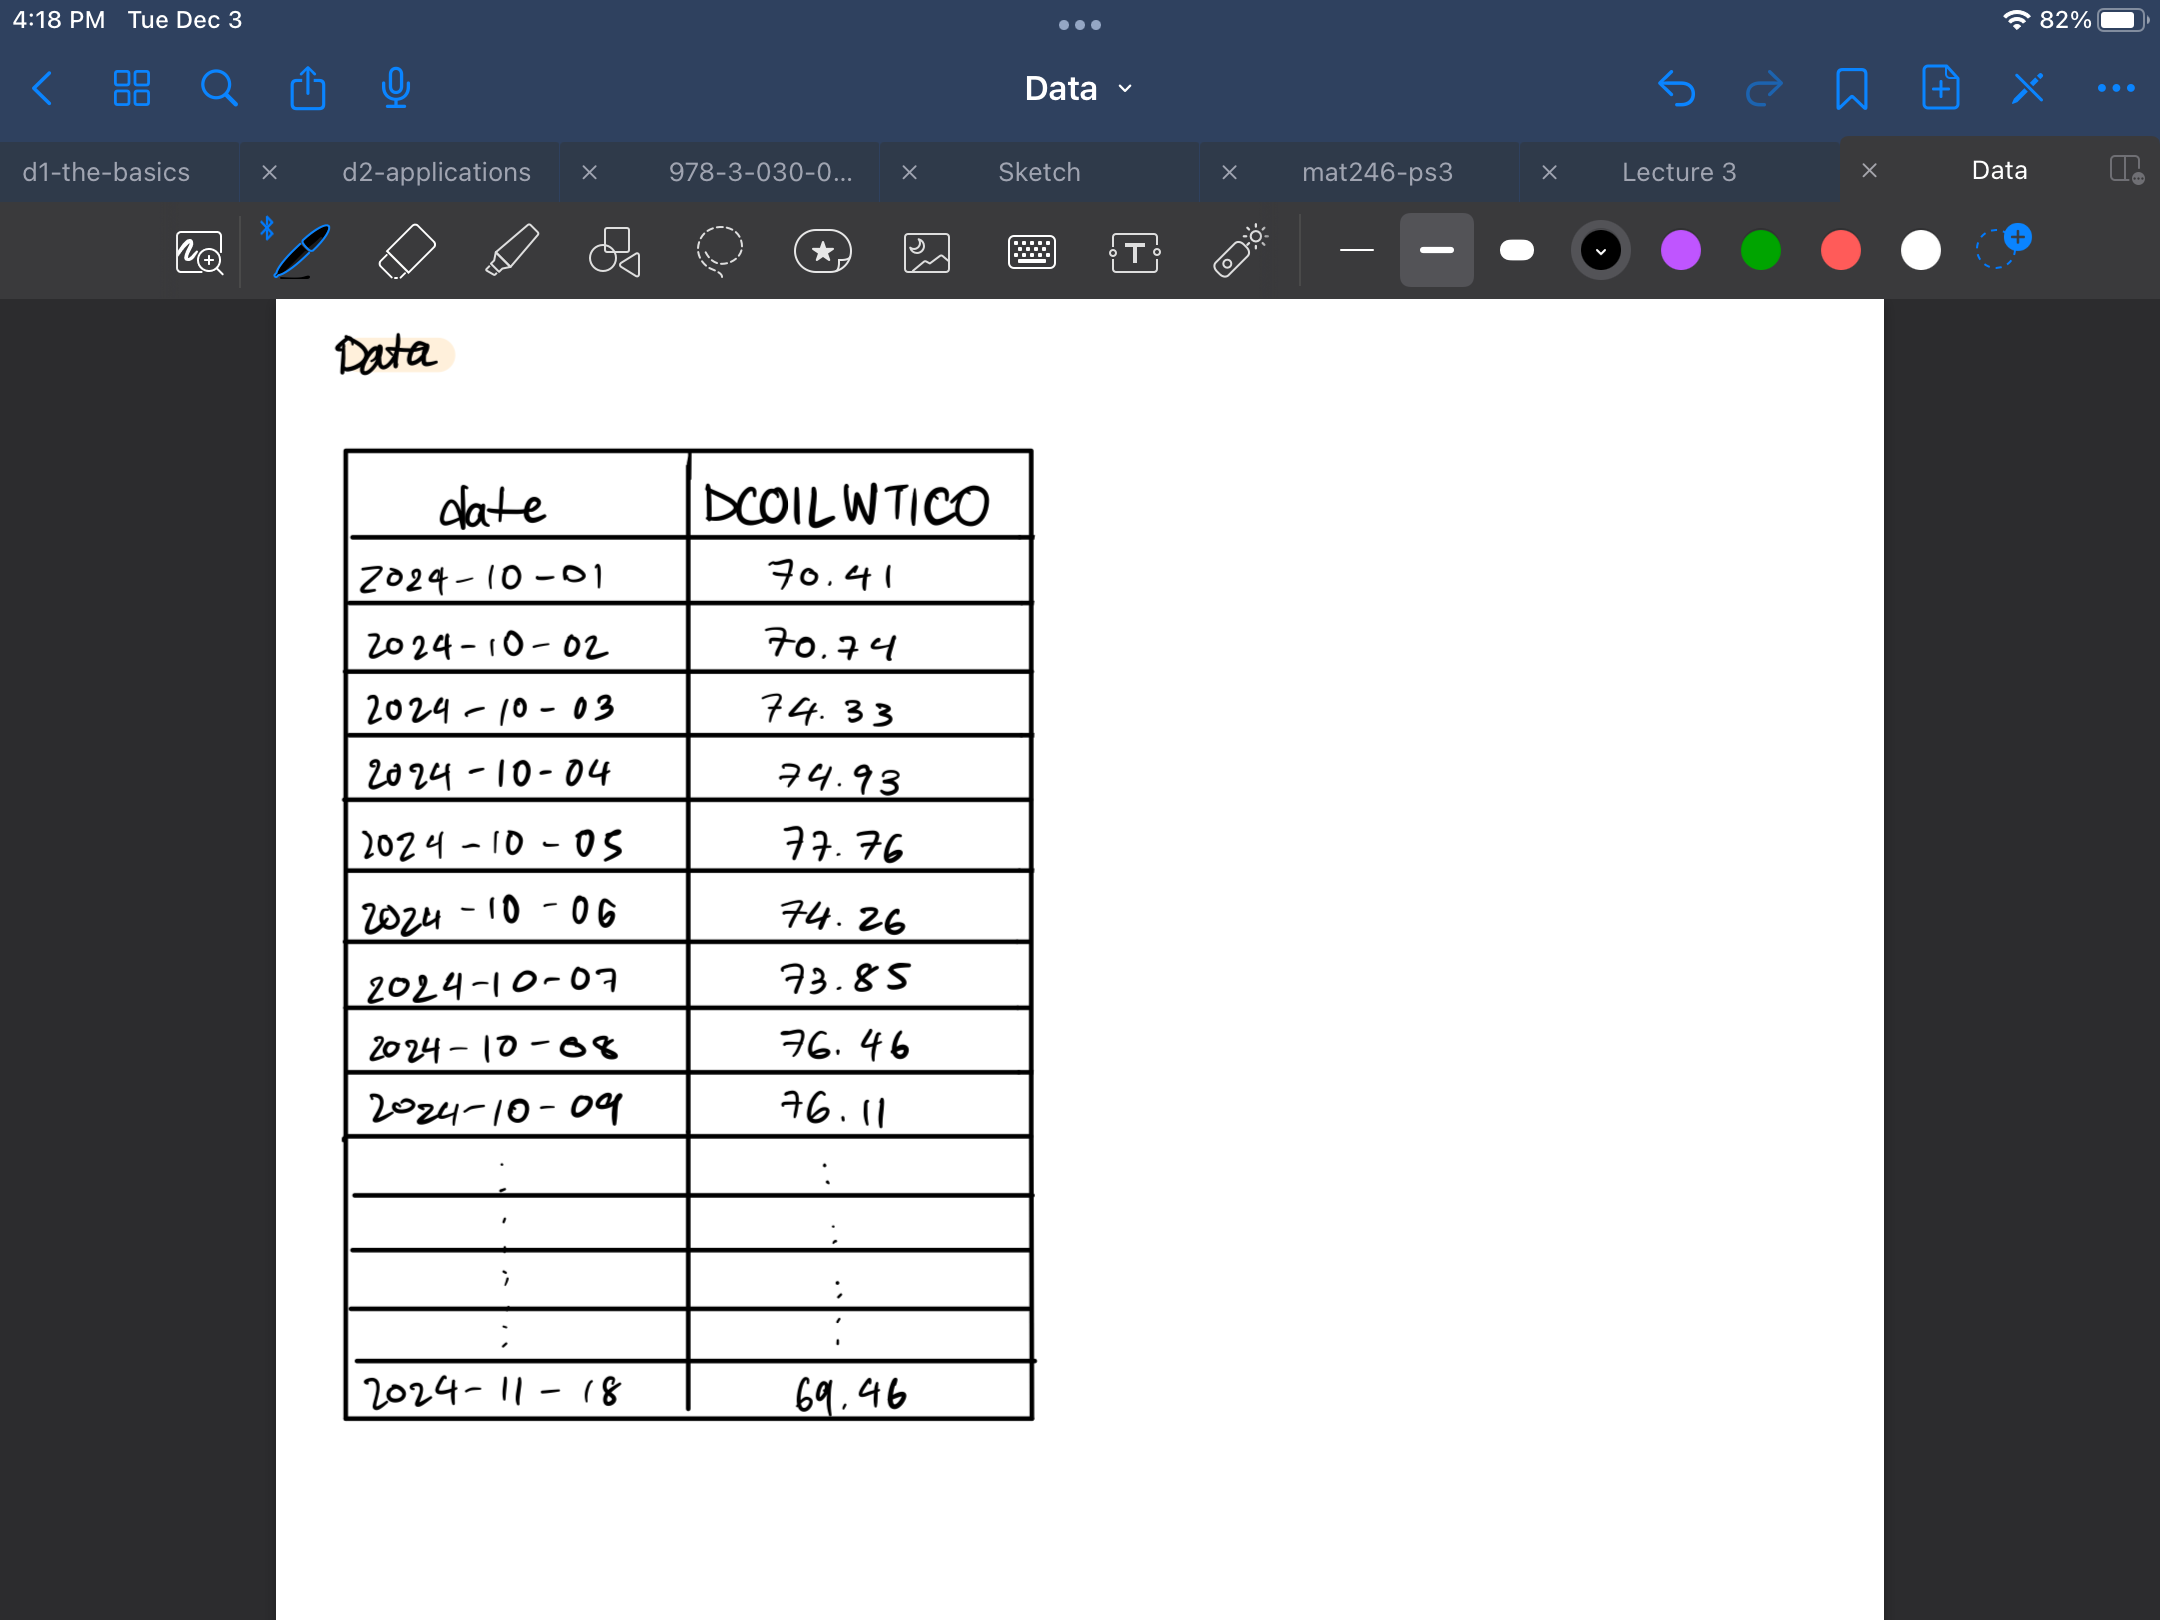 4:18 PM Tue Dec 3
82%
Data
d1-the-basics
d2-applications
978-3-030-0...
Sketch
mat246-ps3
Lecture 3
Data
T
Data
date DCOILWTICO
2024-10-01 70.41
2024-10-02 70.74
2024-10-03 74.33
2024-10-04 74.93
2024-10-05 77.76
2024-10-06 74.26
2024-10-07 73.85
2024-10-08 76.46
2024-10-09 76.11
: :
: :
: :
: :
2024-11-18 69.46